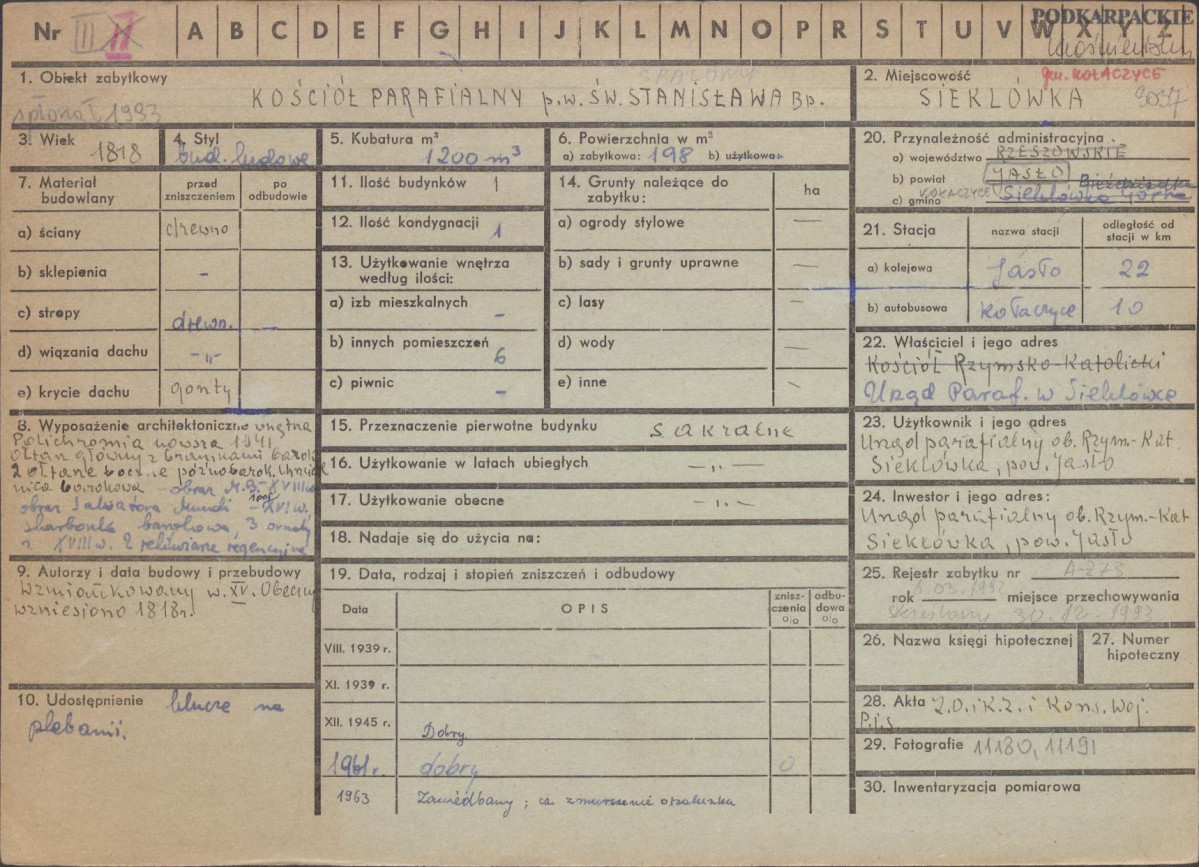 Nr III II A B C D E F G H I J K L M N O P R S T U V W X Y Z
PODKARPACKIE
1. Obiekt zabytkowy
SPALONY
KOŚCIÓŁ PARAFIALNY p.w. ŚW. STANISŁAWA Bp.
spłonął 1993
2. Miejscowość
gm. KOŁACZYCE
SIEKLÓWKA
3. Wiek 1818
4. Styl
bud. ludowe
5. Kubatura m³
1200 m³
6. Powierzchnia w m²
a) zabytkowa: 198 b) użytkowa:
7. Materiał budowlany
przed zniszczeniem
po odbudowie
a) ściany drewno
b) sklepienia -
c) stropy drewn. —
d) wiązania dachu -„-
e) krycie dachu gonty
8. Wyposażenie architektoniczne wnętrza
Polichromia nowsza 1941
Ołtarz główny z bramkami barok
2 ołtarze boczne późnobarok. Chrzciel
nica barokowa - obraz M.B. - XVIII w.
obraz Salvatora Mundi - XVI w.
skarbonka barokowa, 3 ornaty
z XVIII w. 2 relikwiarze regencyjne
9. Autorzy i data budowy i przebudowy
Wzmiankowany w. XV. Obecny
wzniesiono 1818 r.
10. Udostępnienie klucze na
plebanii.
11. Ilość budynków 1
12. Ilość kondygnacji 1
13. Użytkowanie wnętrza
według ilości:
a) izb mieszkalnych -
b) innych pomieszczeń 6
c) piwnic -
14. Grunty należące do
zabytku:
ha
a) ogrody stylowe —
b) sady i grunty uprawne —
c) lasy —
d) wody —
e) inne -
15. Przeznaczenie pierwotne budynku sakralne
16. Użytkowanie w latach ubiegłych -„-
17. Użytkowanie obecne -„-
18. Nadaje się do użycia na:
19. Data, rodzaj i stopień zniszczeń i odbudowy
Data OPIS znisz-czenia % odbu-dowa %
VIII. 1939 r.
XI. 1939 r.
XII. 1945 r. Dobry
1961 r. dobry 0
1963 Zaniedbany; ca. zmurszenie
20. Przynależność administracyjna
a) województwo RZESZOWSKIE
b) powiat JASŁO
c) gmina KOŁACZYCE Sieklówka Górna
21. Stacja
nazwa stacji
odległość od stacji w km
a) kolejowa Jasło 22
b) autobusowa Kołaczyce 10
22. Właściciel i jego adres
Kościół Rzymsko-Katolicki
Urząd Paraf. w Sieklówce
23. Użytkownik i jego adres
Urząd parafialny ob. Rzym.-Kat
Sieklówka, pow. Jasło
24. Inwestor i jego adres:
Urząd parafialny ob. Rzym.-Kat
Sieklówka, pow. Jasło
25. Rejestr zabytku nr A-273
rok miejsce przechowywania
skreślony 30.12.1993
26. Nazwa księgi hipotecznej
27. Numer
hipoteczny
28. Akta Z.O.i K.Z. i Kons. Woj.
P.i.s.
29. Fotografie 11180, 11191
30. Inwentaryzacja pomiarowa